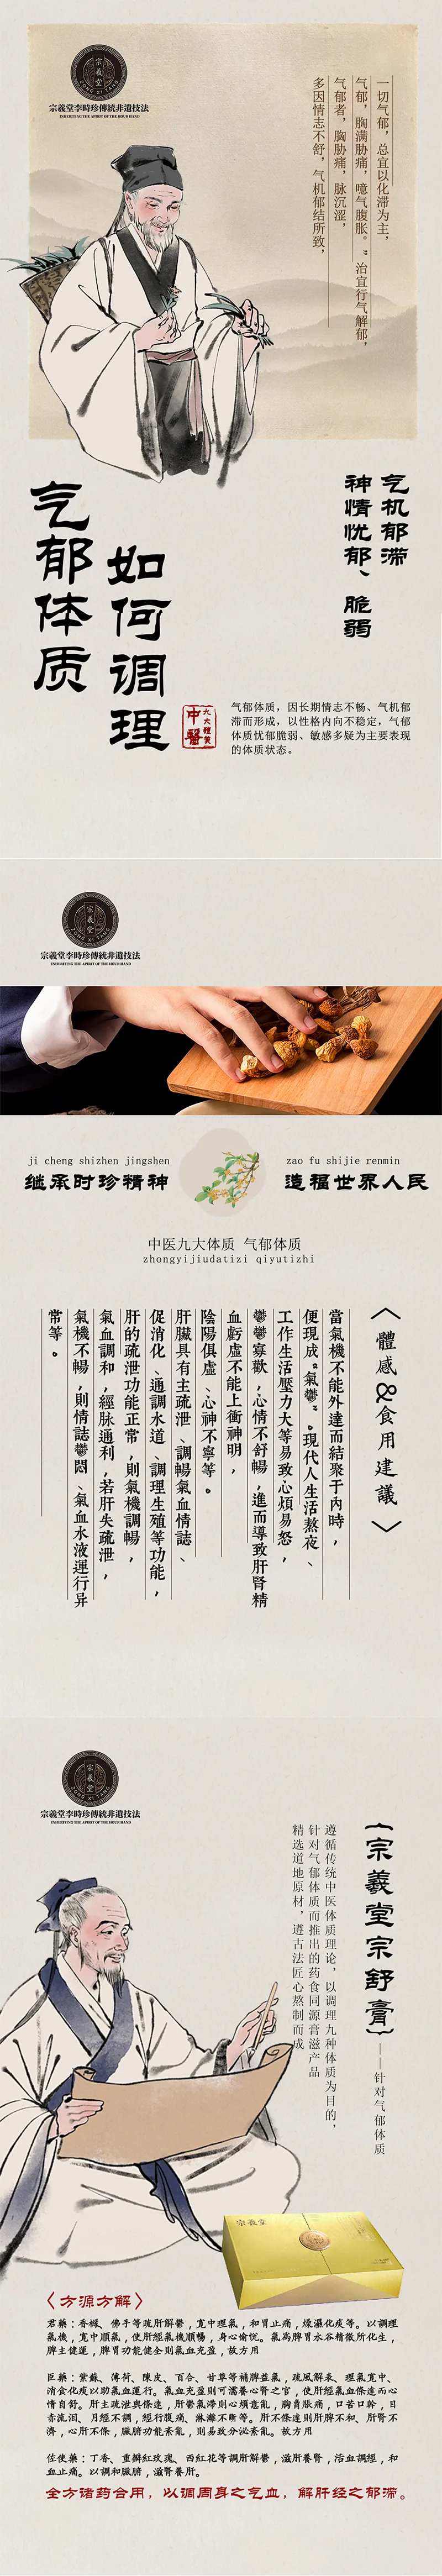 宗羲堂
ZONG XI TANG
宗羲堂李時珍傳統非遺技法
INHERITING THE APIRIT OF THE HOUR HAND
一切气郁，总宜以化滞为主，
气郁，胸满胁痛，噫气腹胀。”治宜行气解郁，
气郁者，胸胁痛，脉沉涩，
多因情志不舒，气机郁结所致，
气机郁滞
神情忧郁、脆弱
气郁体质
如何调理
九大體質
中醫
气郁体质，因长期情志不畅、气机郁
滞而形成，以性格内向不稳定，气郁
体质忧郁脆弱、敏感多疑为主要表现
的体质状态。
宗羲堂
ZONG XI TANG
宗羲堂李時珍傳統非遺技法
INHERITING THE APIRIT OF THE HOUR HAND
ji cheng shizhen jingshen
继承时珍精神
zao fu shijie renmin
造福世界人民
中医九大体质 气郁体质
zhongyijiudatizi qiyutizhi
〈體感&食用建議〉
當氣機不能外達而結聚于內時，
便現成“氣鬱”。現代人生活熬夜、
工作生活壓力大等易致心煩易怒，
鬱鬱寡歡，心情不舒暢，進而導致肝腎精
血虧虛不能上衝神明，
陰陽俱虛、心神不寧等。
肝臟具有主疏泄、調暢氣血情誌、
促消化、通調水道、調理生殖等功能，
肝的疏泄功能正常，則氣機調暢，
氣血調和，經脉通利，若肝失疏泄，
氣機不暢，則情誌鬱悶、氣血水液運行异
常等。
宗羲堂
ZONG XI TANG
宗羲堂李時珍傳統非遺技法
INHERITING THE APIRIT OF THE HOUR HAND
{宗羲堂宗舒膏}——针对气郁体质
遵循传统中医体质理论，以调理九种体质为目的，
针对气郁体质而推出的药食同源膏滋产品
精选道地原材，遵古法匠心熬制而成
宗羲堂
〈方源方解〉
君藥：香櫞、佛手等疏肝解鬱，寬中理氣，和胃止痛，燥濕化痰等。以調理
氣機，寬中順氣，使肝經氣機順暢，身心愉悅。氣為脾胃水谷精微所化生，
脾主健運，脾胃功能健全則氣血充盈，故方用
臣藥：紫蘇、薄荷、陳皮、百合、甘草等補脾益氣，疏風解表、理氣寬中、
消食化痰以助氣血運行。氣血充盈則可濡養心腎之官，使肝經氣血條達而心
情自舒。肝主疏泄與條達，肝鬱氣滯則心煩意亂，胸脅脹痛，口苦口幹，目
赤流泪、月經不調，經行腹痛、淋漓不斷等。肝不條達則肝脾不和、肝腎不
濟，心肝不條，臟腑功能紊亂，則易致分泌紊亂。故方用
佐使藥：丁香、重瓣紅玫瑰、西紅花等調肝解鬱，滋肝養腎，活血調經，和
血止痛。以調和臟腑，滋腎養肝。
全方诸药合用，以调周身之气血，解肝经之郁滞。